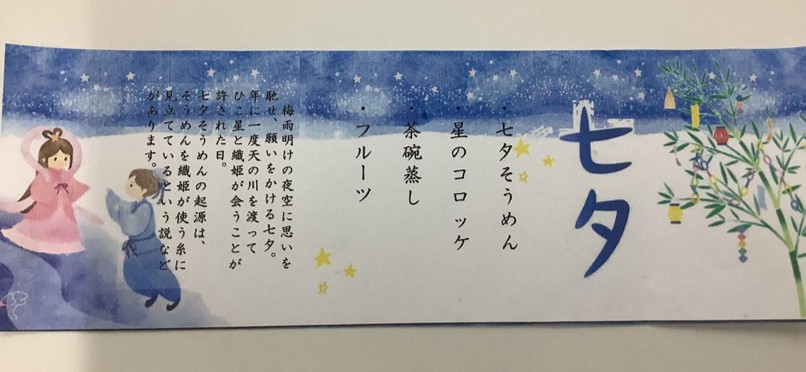 七夕
・七夕そうめん
・星のコロッケ
・茶碗蒸し
・フルーツ
梅雨明けの夜空に思いを
馳せ、願いをかける七夕。
年に一度天の川を渡って
ひこ星と織姫が会うことが
許された日。
七夕そうめんの起源は、
そうめんを織姫が使う糸に
見立てているという説など
があります。